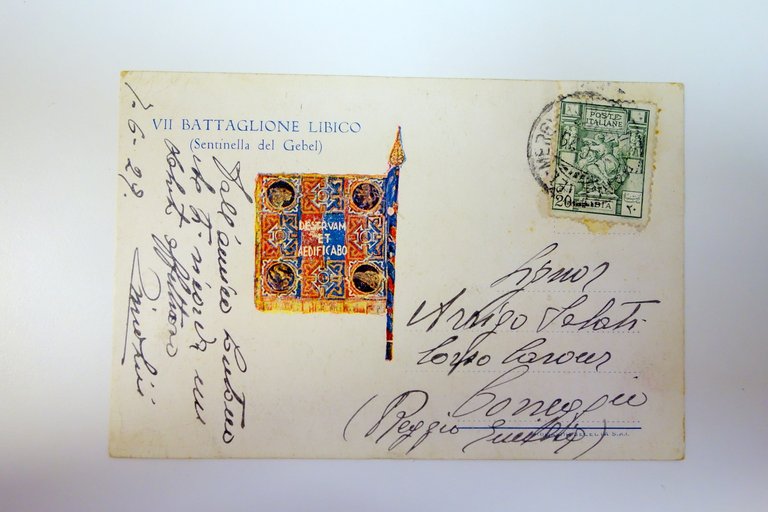 VII BATTAGLIONE LIBICO
(Sentinella del Gebel)
DESTRVAM
ET
AEDIFICABO
POSTE
ITALIANE
20
LIBIA
٢٠
Dall'amico lontano
che ti ricorda un
saluto affettuoso
Signor
Arrigo Salati
Corso Cavour
Correggio
(Reggio Emilia)